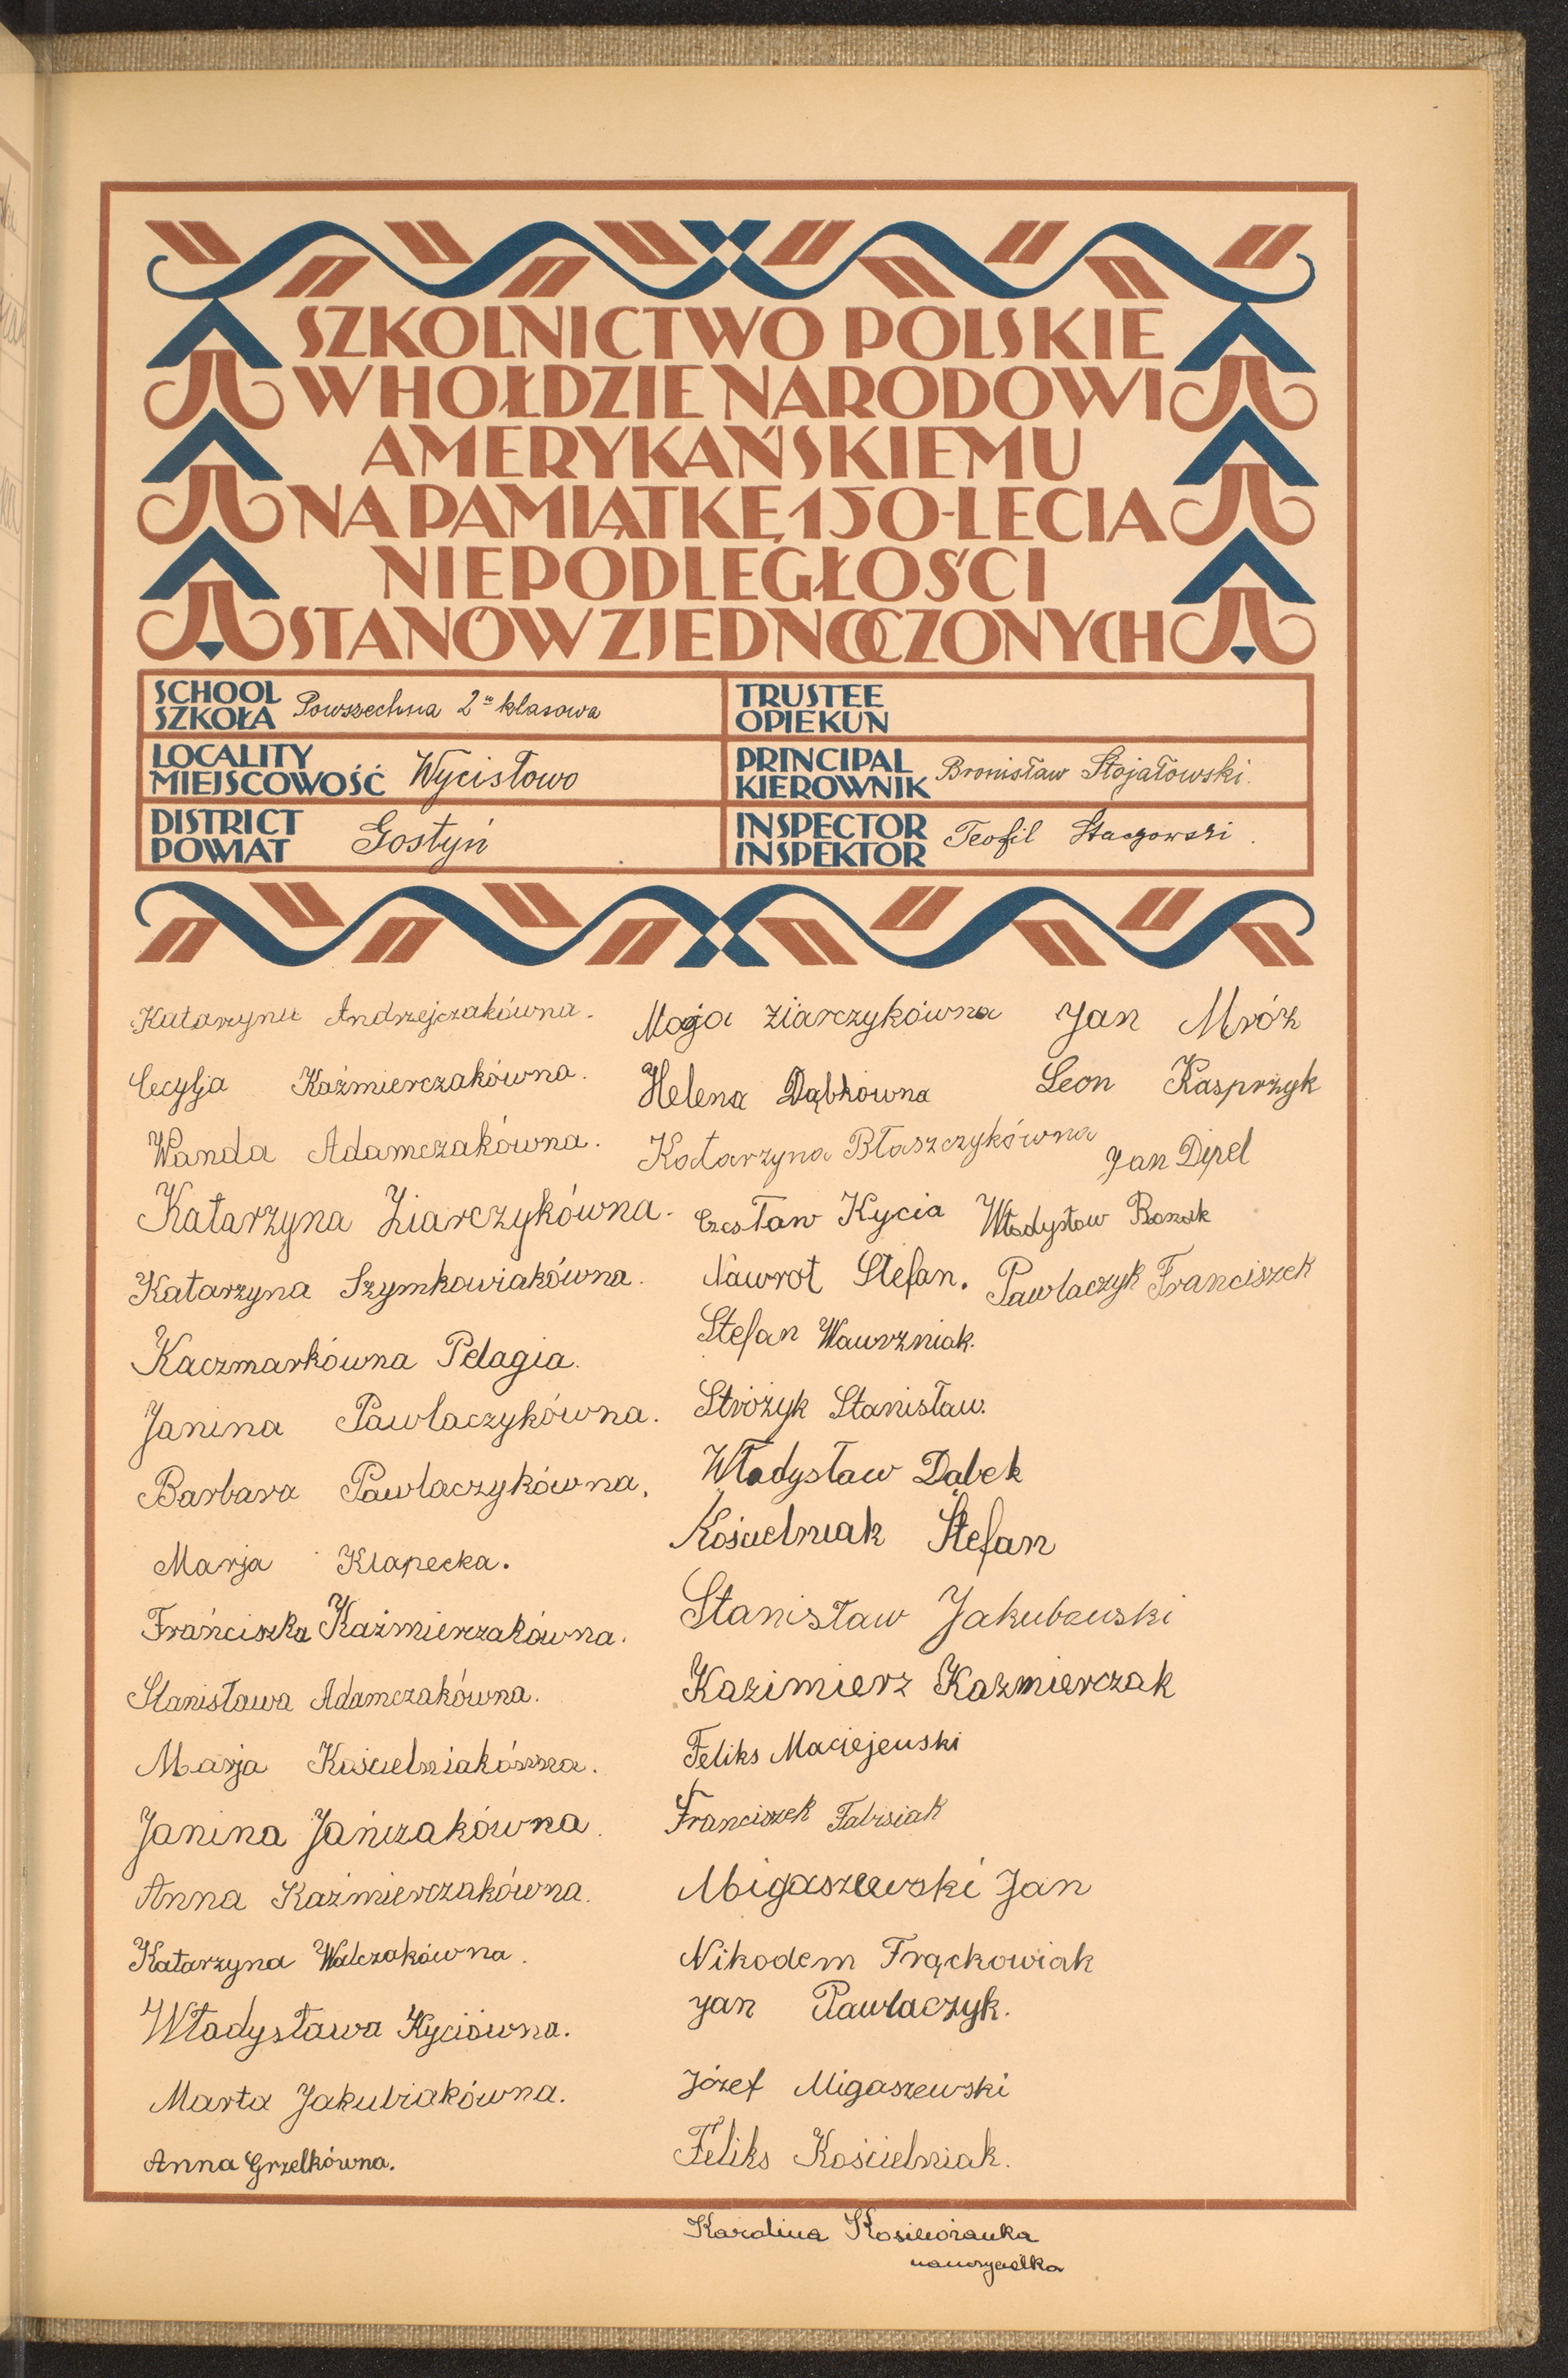 SZKOLNICTWO POLSKIE
W HOŁDZIE NARODOWI
AMERYKAŃSKIEMU
NA PAMIĄTKĘ 150-LECIA
NIEPODLEGŁOŚCI
STANÓW ZJEDNOCZONYCH
SCHOOL
SZKOŁA Powszechna 2 klasowa
TRUSTEE
OPIEKUN
LOCALITY
MIEJSCOWOŚĆ Wycisłowo
PRINCIPAL
KIEROWNIK Bronisław Stojałowski.
DISTRICT
POWIAT Gostyń
INSPECTOR
INSPEKTOR Teofil
Katarzyna Andrzejczakówna.
Cecylja Kaźmierczakówna.
Wanda Adamczakówna.
Katarzyna Ziarczykówna.
Katarzyna Szymkowiakówna.
Kaczmarkówna Pelagia.
Janina Pawlaczykówna.
Barbara Pawlaczykówna.
Marja Klapecka.
Franciszka Kaźmierczakówna.
Stanisława Adamczakówna.
Marja Kościelniakówna.
Janina Jańczakówna.
Anna Kaźmierczakówna.
Katarzyna Walczakówna.
Władysława Kyciówna.
Marta Jakubiakówna.
Anna Grzelkówna.
Ziarczykówna
Helena Dąbkówna
Katarzyna Błaszczykówna
Czesław Kycia
Nawrot Stefan.
Stefan Wawrzniak.
Stróżyk Stanisław.
Władysław Dąbek
Kościelniak Stefan
Stanisław Jakubowski
Kazimierz Kaźmierczak
Feliks Maciejewski
Franciszek Fabisiak
Migaszewski Jan
Nikodem Frąckowiak
Jan Pawlaczyk.
Józef Migaszewski
Feliks Kościelniak.
Jan Mróz
Leon Kasprzyk
Jan Dipel
Władysław
Pawlaczyk Franciszek
Karolina
nauczycielka